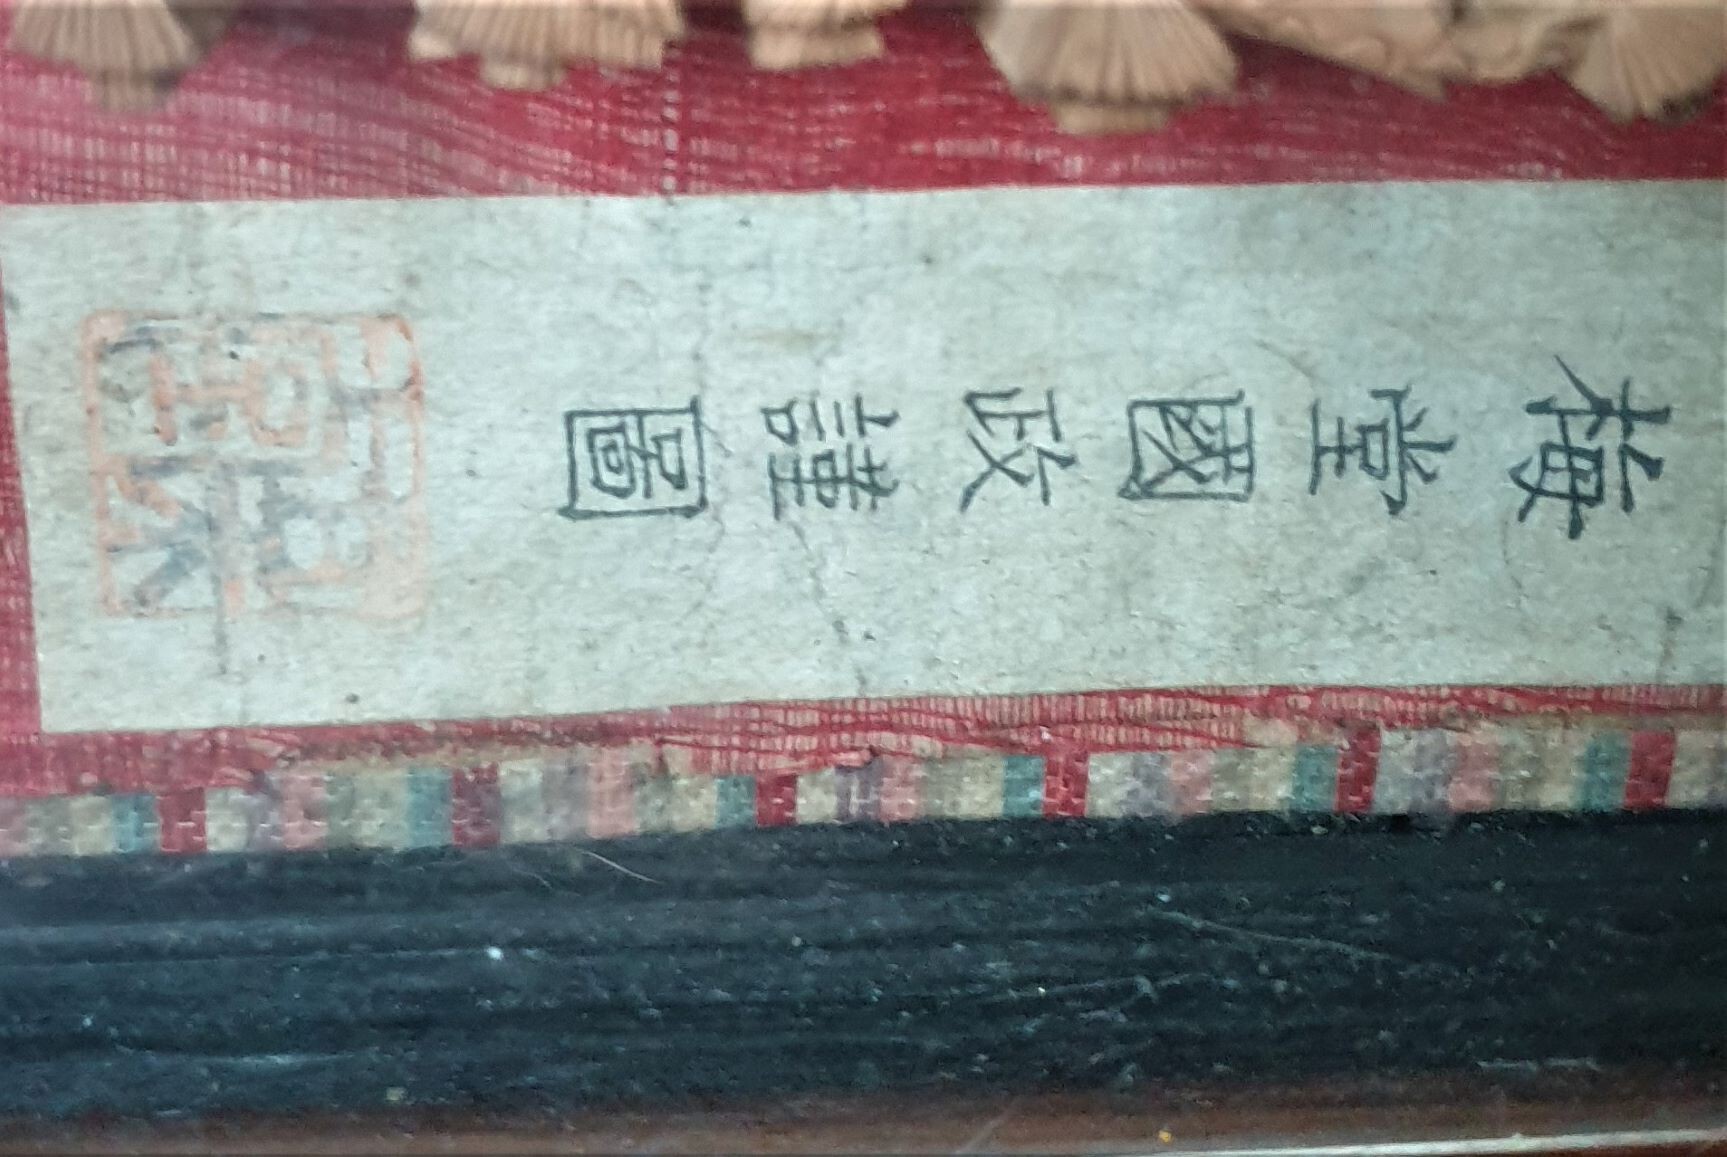 梅堂國政謹圖